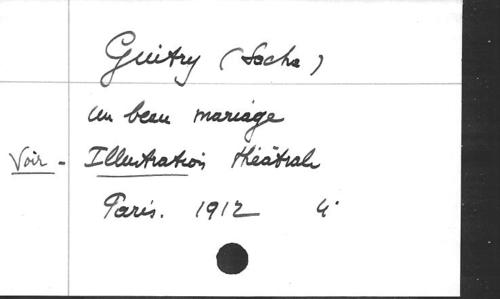 Guitry (Sacha)
Un beau mariage
Voir - Illustration théâtrale
Paris. 1912 4°